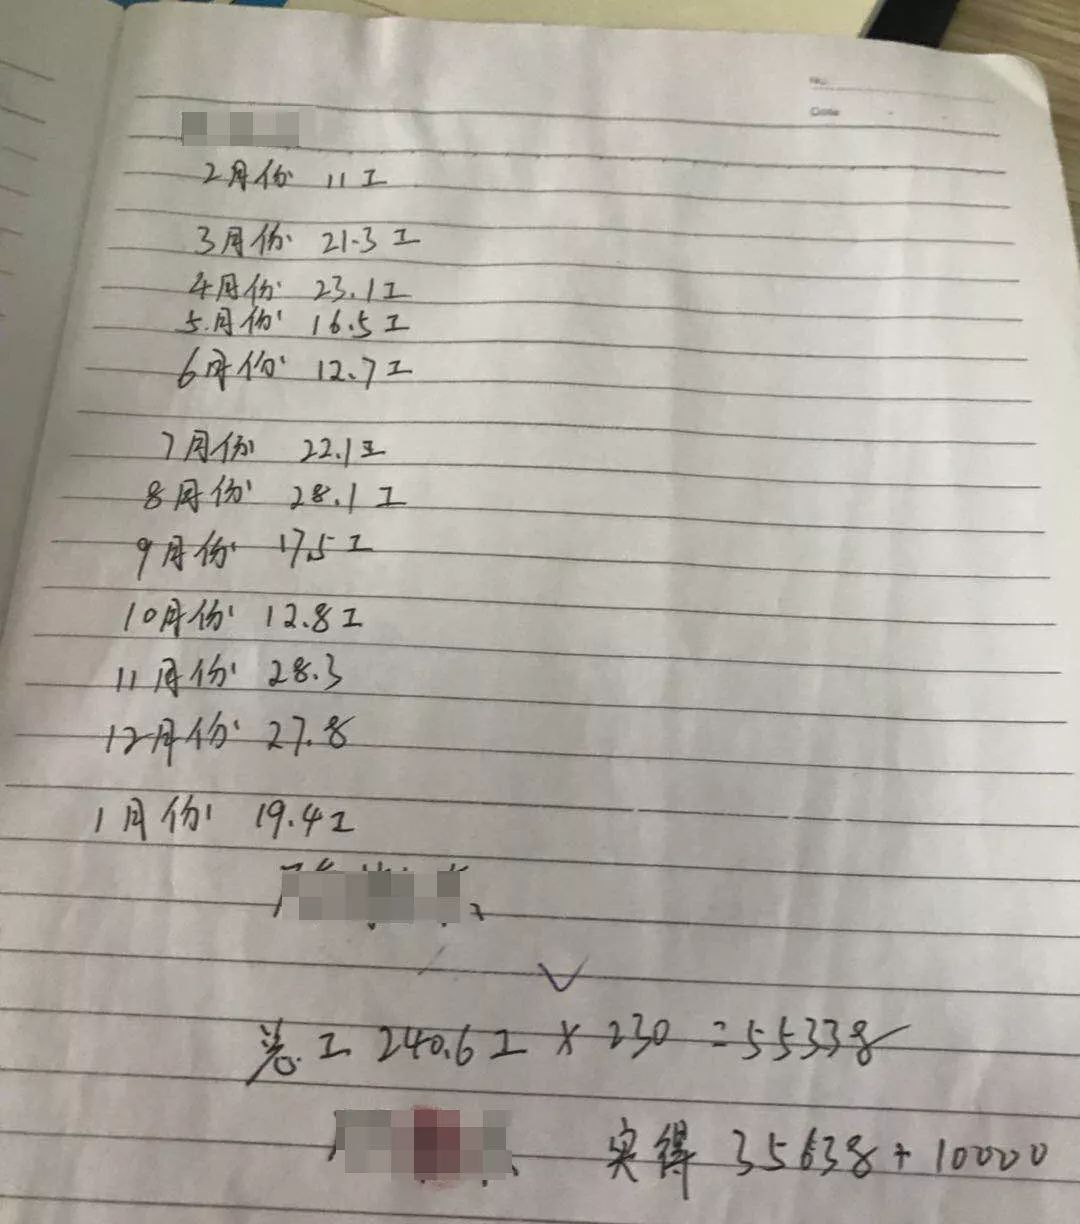 No.
Date
2月份 11工
3月份 21.3工
4月份 23.1工
5月份 16.5工
6月份 12.7工
7月份 22.1工
8月份 28.1工
9月份 17.5工
10月份 12.8工
11月份 28.3
12月份 27.8
1月份 19.4工
总工 240.6工 × 230 = 55338
实得 35638 + 10000